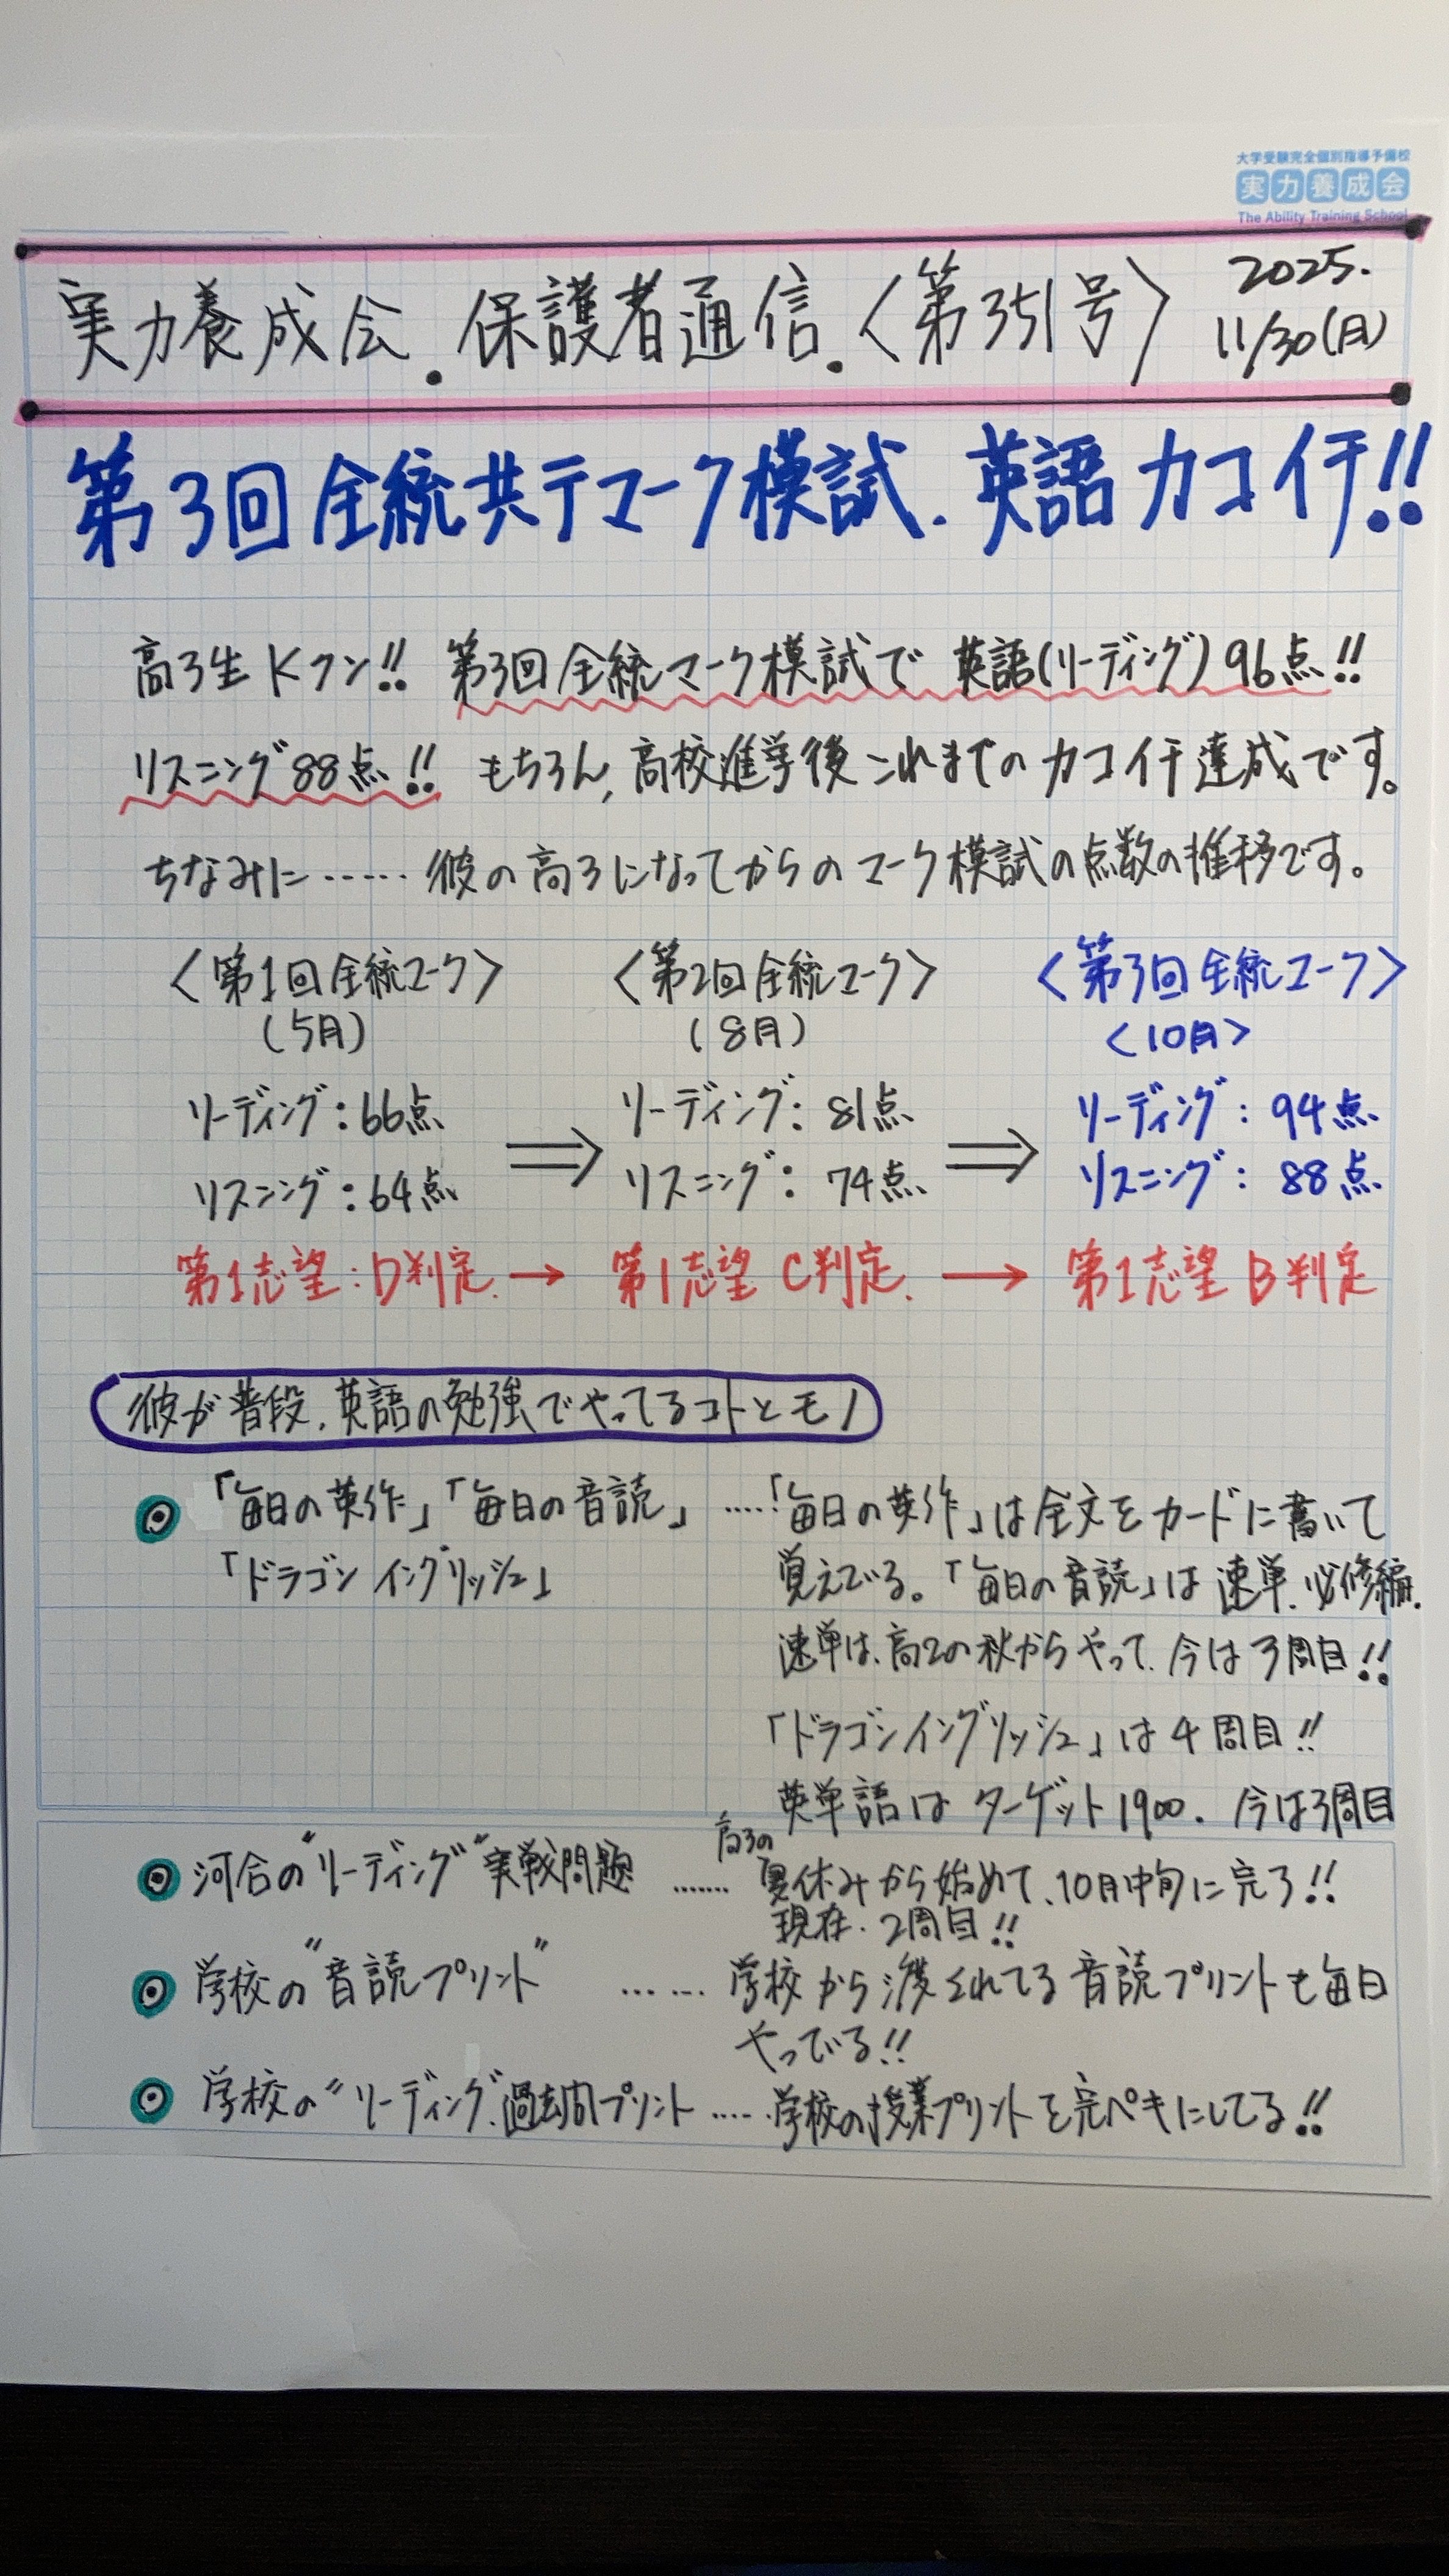 大学受験完全個別指導予備校
実力養成会
The Ability Training School
実力養成会.保護者通信.〈第351号〉
2025.
11/30(月)
第3回全統共テマーク模試.英語カコイチ!!
高3生Kクン!! 第3回全統マーク模試で 英語(リーディング)96点!!
リスニング88点!! もちろん,高校進学後これまでのカコイチ達成です。
ちなみに……彼の高3になってからのマーク模試の点数の推移です。
〈第1回全統マーク〉 〈第2回全統マーク〉 〈第3回全統マーク〉
(5月) (8月) <10月>
リーディング:66点 リーディング:81点 リーディング:94点
⇒ ⇒
リスニング:64点 リスニング:74点 リスニング:88点
第1志望:D判定.→ 第1志望 C判定. → 第1志望 B判定
彼が普段.英語の勉強でやってるコトとモノ
「毎日の英作」「毎日の音読」 ….「毎日の英作」は全文をカードに書いて
「ドラゴンイングリッシュ」 覚えている。「毎日の音読」は速単.必修編.
速単は、高2の秋からやって.今は3周目!!
「ドラゴンイングリッシュ」は4周目!!
英単語はターゲット1900. 今は3周目
河合の"リーディング"実戦問題 …… 高3の夏休みから始めて、10月中旬に完了!!
現在.2周目!!
学校の"音読プリント" …… 学校から渡されてる音読プリントも毎日
やっている!!
学校の"リーディング"過去問プリント …..学校の授業プリントを完ペキにしてる!!